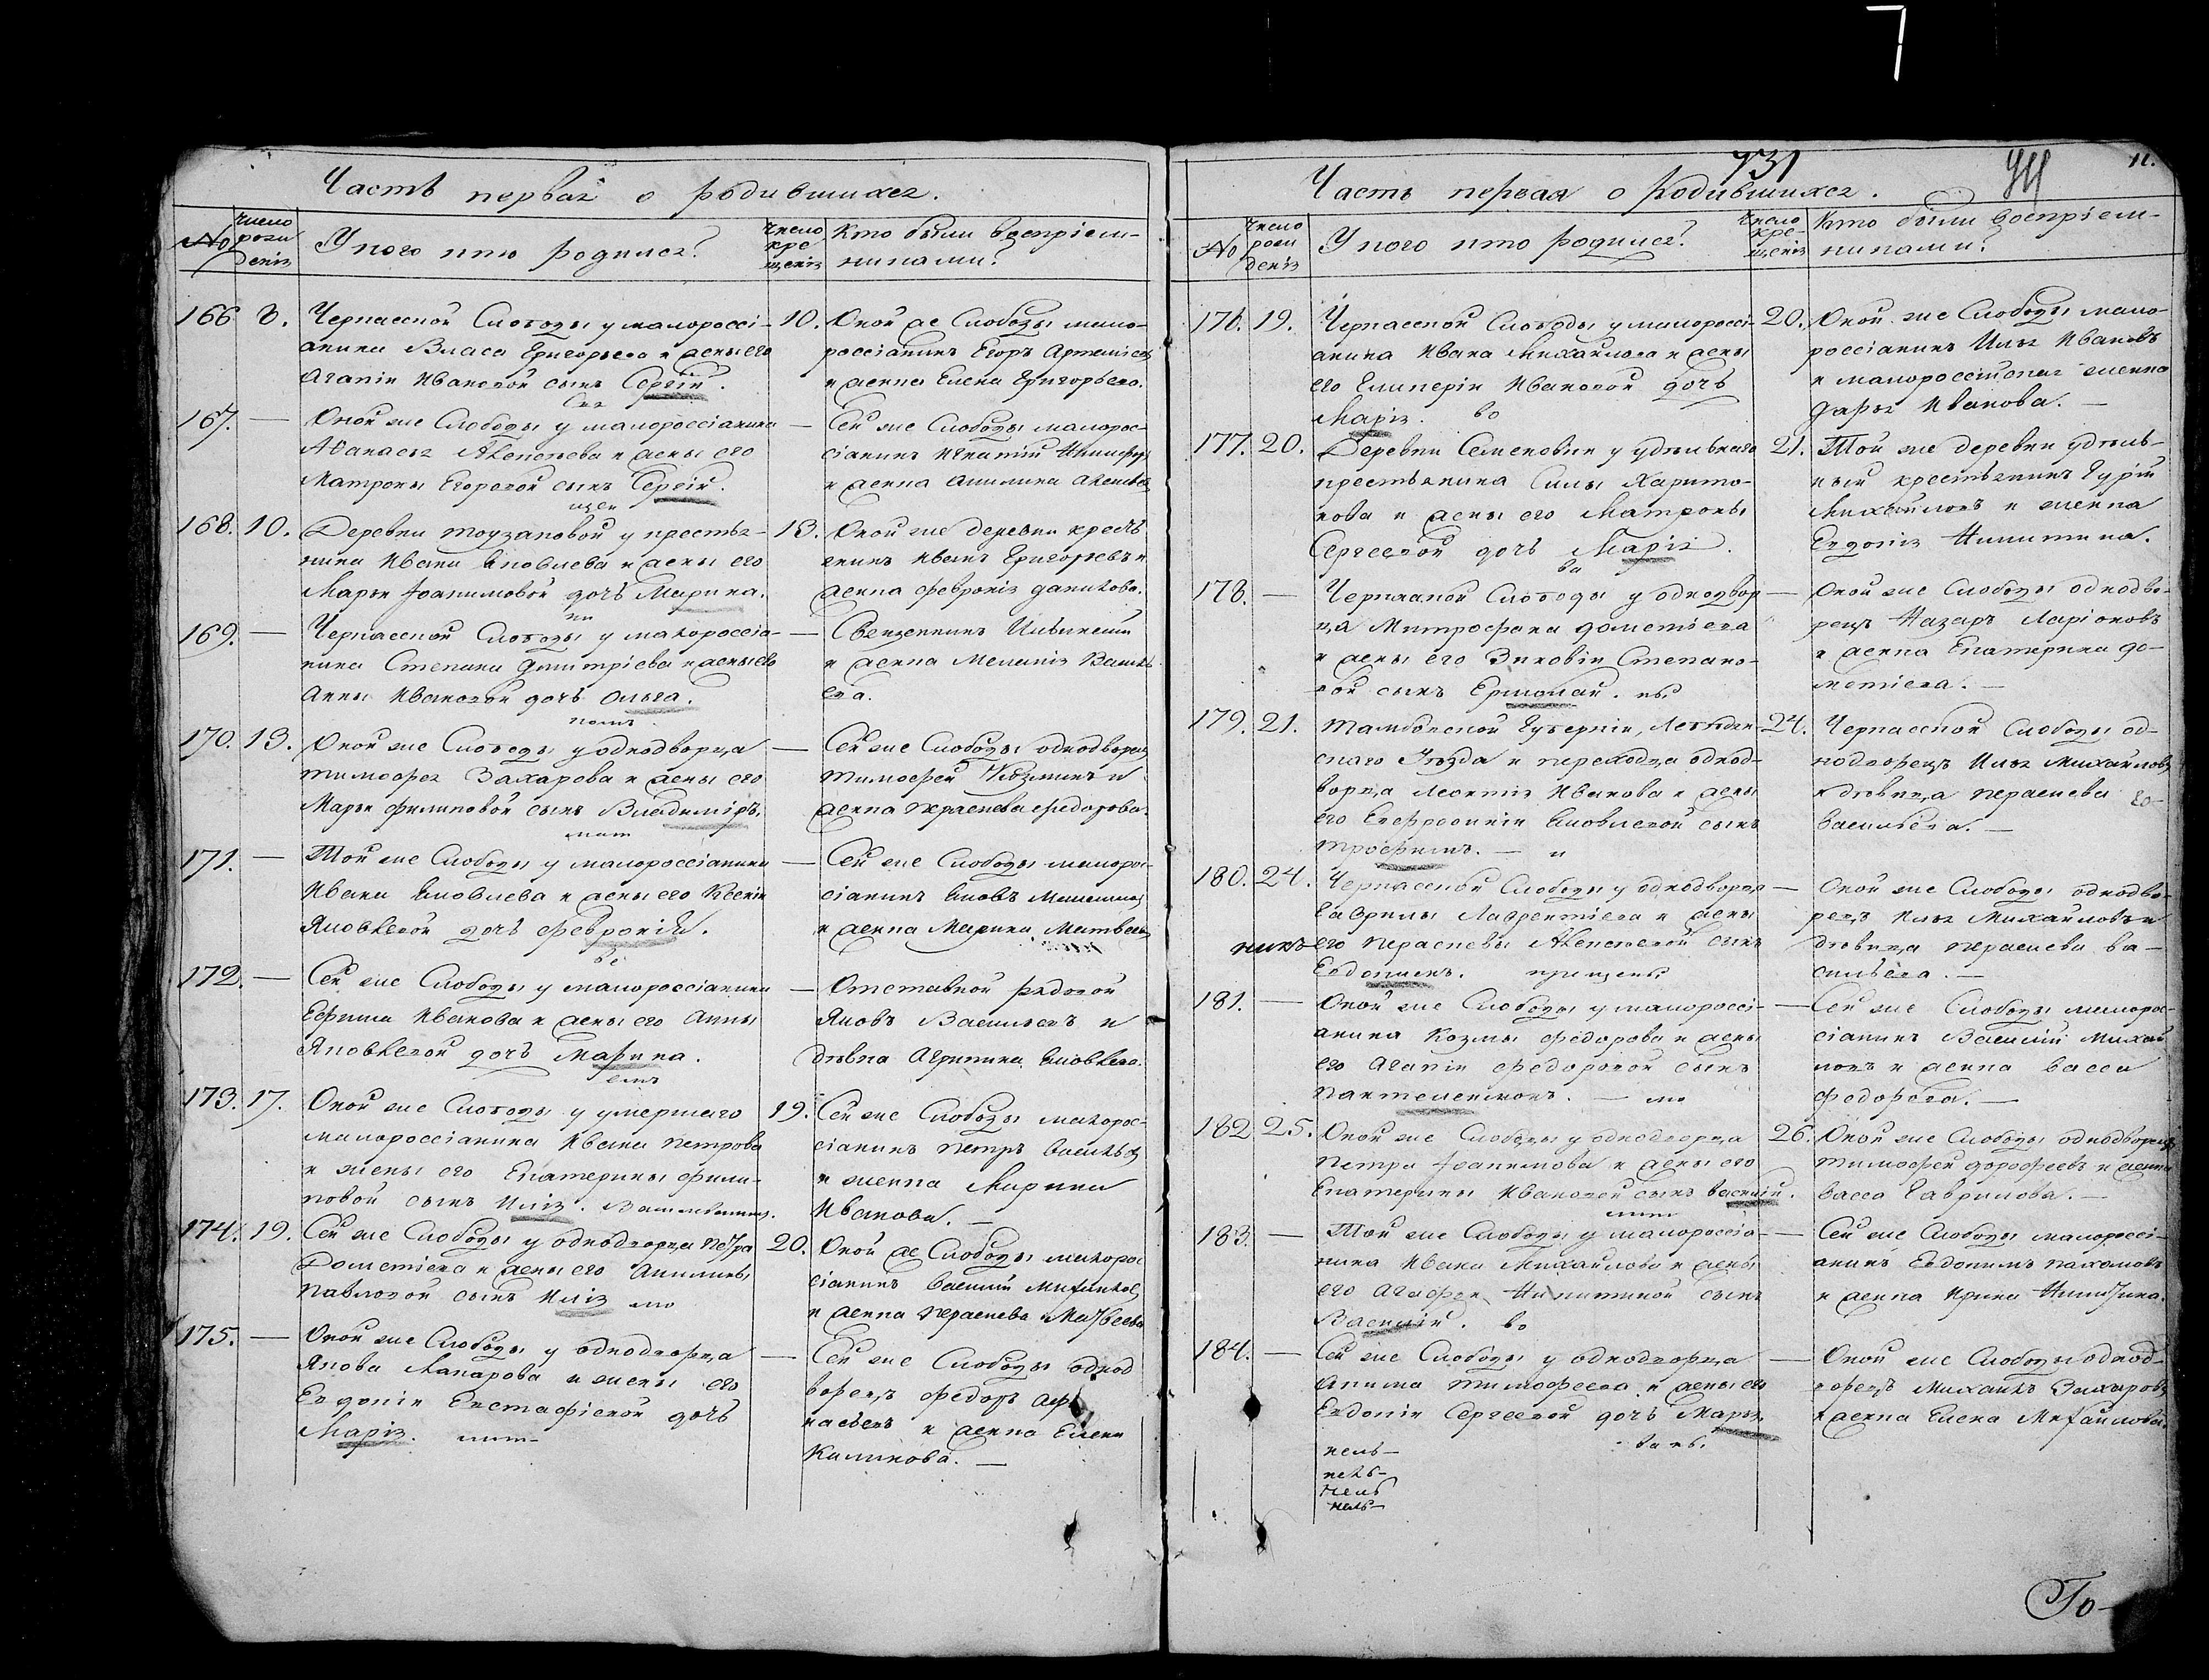 7
Часть первая о родившихся.
№
число рожденія
У кого кто родился?
число крещенія
Кто были воспріем-
никами?
166
8.
Черкасской Слободы у малороссі-
янина Власа Григорьева и жены его
Агапіи Ивановой сынъ Сергій.
10.
Оной же Слободы мало-
россіянинъ Егоръ
и женка Елена Григорьева.
167.
—
Оной же Слободы у малороссіянина
Аѳанасья Алексѣева и жены его
Матроны Егоровой сынъ Сергій.
—
Сей же Слободы малорос-
сіянинъ Игнатій
и женка Акилина
168.
10.
Деревни Тоузаковой у крестья-
нина Ивана Яковлева и жены его
Марьи Іоакимовой дочь Марина.
13.
Оной же деревни кресть
янинъ Иванъ Григорьевъ и
женка Февронія Данилова.
169.
—
Черкасской Слободы у малороссія-
нина Степана Димитріева и жены его
Анны Ивановой дочь Ольга.
—
Священникъ
и женка Меланія Василь
ева.
170.
13.
Оной же Слободы у однодворца
Тимофея Захарова и жены его
Марьи Филиповой сынъ Владиміръ.
—
Сей же Слободы однодворецъ
Тимофей и
женка Параскева Федорова.
171.
—
Той же Слободы у малороссіянина
Ивана Яковлева и жены его Ксеніи
Яковлевой дочь Февронія.
—
Сей же Слободы малорос-
сіянинъ Яковъ
и женка Марина
172.
—
Сей же Слободы у малороссіянина
Ефима Иванова и жены его Анны
Яковлевой дочь Марина.
—
Отставной рядовой
Яковъ Васильевъ и
дѣвка Агрипина Яковлева.
173.
17.
Оной же Слободы у умершаго
малороссіянина Ивана Петрова
и жены его Екатерины Фили-
повой сынъ Илія.
19.
Сей же Слободы малорос-
сіянинъ Петръ
и женка Марина
Иванова. —
174.
19.
Сей же Слободы у однодворца Петра
Дометіева и жены его Акилины
Павловой сынъ Илія
20.
Оной же Слободы малорос
сіянинъ Василій
и женка Параскева Матвеева
175.
—
Оной же Слободы у однодворца
Якова Макарова и жены его
Евдокіи Евстафіевой дочь
Марія.
—
Сей же Слободы однод
ворецъ Федоръ Афа
насьевъ и женка Елена
Калинова. —
931
11.
Часть первая о родившихся.
№
число рожденія
У кого кто родился?
число крещенія
Кто были воспріем-
никами?
176.
19.
Черкасской Слободы у малороссі-
янина Ивана Михайлова и жены
его Гликеріи Ивановой дочь
Марія.
20.
Оной же Слободы мало-
россіянинъ Илья Ивановъ
и малороссійская женка
Дарья Иванова. —
177.
20.
Деревни Семеновки у удѣльнаго
крестьянина Силы Харито-
нова и жены его Матроны
Сергеевой дочь Марія.
21.
Той же деревни удѣль-
ный крестьянинъ Гурій
Михайловъ и женка
Евдокія Никитина.
178.
—
Черкасской Слободы у однодвор
ца Митрофана Дометіева
и жены его Зиновіи Степано-
вой сынъ Ермолай.
—
Оной же Слободы однодво-
рецъ Назаръ Ларіоновъ
и женка Екатерина До-
метіева. —
179.
21.
Тамбовской Губерніи, Лебедян-
скаго Уѣзда и переходца однод-
ворца Леонтія Иванова и жены
его Евфросиніи Яковлевой сынъ
Трофимъ. —
24.
Черкасской Слободы од-
нодворецъ Илья Михайловъ
и дѣвица Параскева
Васильева. —
180.
24.
Черкасской Слободы у однодворца
Гаврилы Лаврентіева и жены
его Параскевы Алексеевой сынъ
Евдокимъ.
—
Оной же Слободы однодво-
рецъ Илья Михайловъ и
дѣвица Параскева Ва-
сильева. —
181.
—
Оной же Слободы у малороссі-
янина Козмы Федорова и жены
его Агапіи Федоровой сынъ
Пантелеимонъ. —
—
Сей же Слободы малорос-
сіянинъ Василій Михай
ловъ и женка Васса
Федорова. —
182
25.
Оной же Слободы у однодворца
Петра Іоакимова и жены его
Екатерины Ивановой сынъ Василій.
26.
Оной же Слободы однодворецъ
Тимофей Дорофеевъ и женка
Васса Гаврилова. —
183.
—
Той же Слободы у малороссія-
нина Ивана Михайлова и жены
его Агафьи Никитиной сынъ
Василій.
—
Сей же Слободы малороссі-
янинъ Евдокимъ Пахомовъ
и женка Ирина Никитина.
184.
—
Сей же Слободы у однодворца
Акима Тимофеева и жены его
Евдокіи Сергеевой дочь Марья.
—
Оной же Слободы однод-
ворецъ Михаилъ Захаровъ
и женка Елена Михайлова.